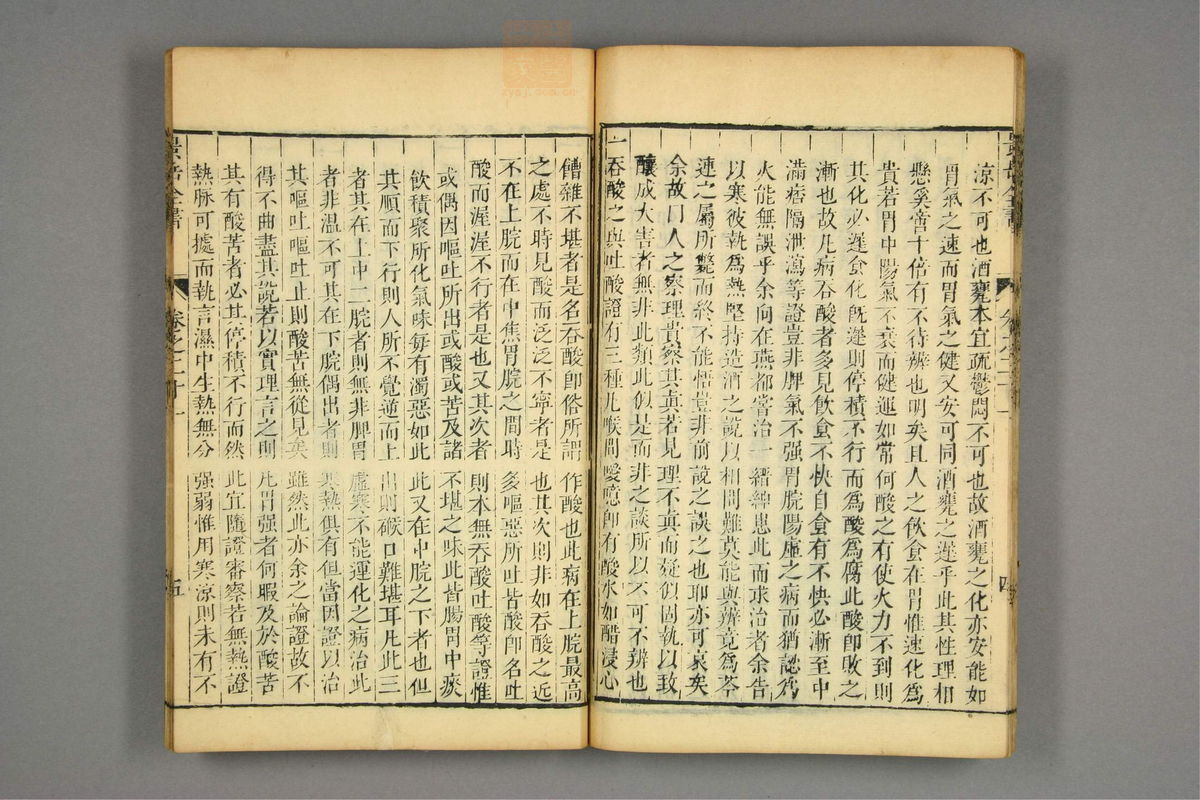 涼不可也酒甕本宜疏鬱悶不可也故酒甕之化亦安能如
胃氣之速而胃氣之健又安可同酒甕之遲乎此其性理相
懸奚啻十倍有不待辨也明矣且人之飲食在胃惟速化爲
貴若胃中陽氣不衰而健運如常何酸之有使火力不到則
其化必遲食化既遲則停積不行而爲酸爲腐此酸卽敗之
漸也故凡病吞酸者多見飲食不快自食有不快必漸至中
滿痞隔泄瀉等證豈非脾氣不强胃脘陽虛之病而猶認爲
火能無誤乎余向在燕都嘗治一縉紳患此而求治者余告
以寒彼執爲熱堅持造酒之說以相問難莫能與辨竟爲芩
連之屬所斃而終不能悟豈非前說之誤之也耶亦可哀矣
余故曰人之察理貴察其眞若見理不眞而疑似固執以致
釀成大害者無非此類此似是而非之談所以不可不辨也
一吞酸之與吐酸證有三種凡喉間噯噫卽有酸水如醋浸心
景岳全書
卷之二十一
四
嘈雜不堪者是名吞酸卽俗所謂作酸也此病在上脘最高
之處不時見酸而泛泛不寧者是也其次則非如吞酸之近
不在上脘而在中焦胃脘之間時多嘔惡所吐皆酸卽名吐
酸而渥渥不行者是也又其次者則本無吞酸吐酸等證惟
或偶因嘔吐所出或酸或苦及諸不堪之味此皆腸胃中痰
飲積聚所化氣味每有濁惡如此此又在中脘之下者也但
其順而下行則人所不覺逆而上出則喉口難堪耳凡此三
者其在上中二脘者則無非脾胃虛寒不能運化之病治此
者非溫不可其在下脘偶出者則寒熱俱有但當因證以治
其嘔吐嘔吐止則酸苦無從見矣雖然此亦余之論證故不
得不曲盡其說若以實理言之則凡胃强者何暇及於酸苦
其有酸苦者必其停積不行而然此宜隨證審察若無熱證
熱脉可據而執言濕中生熱無分强弱惟用寒涼則未有不
景岳全書
卷之二十一
五